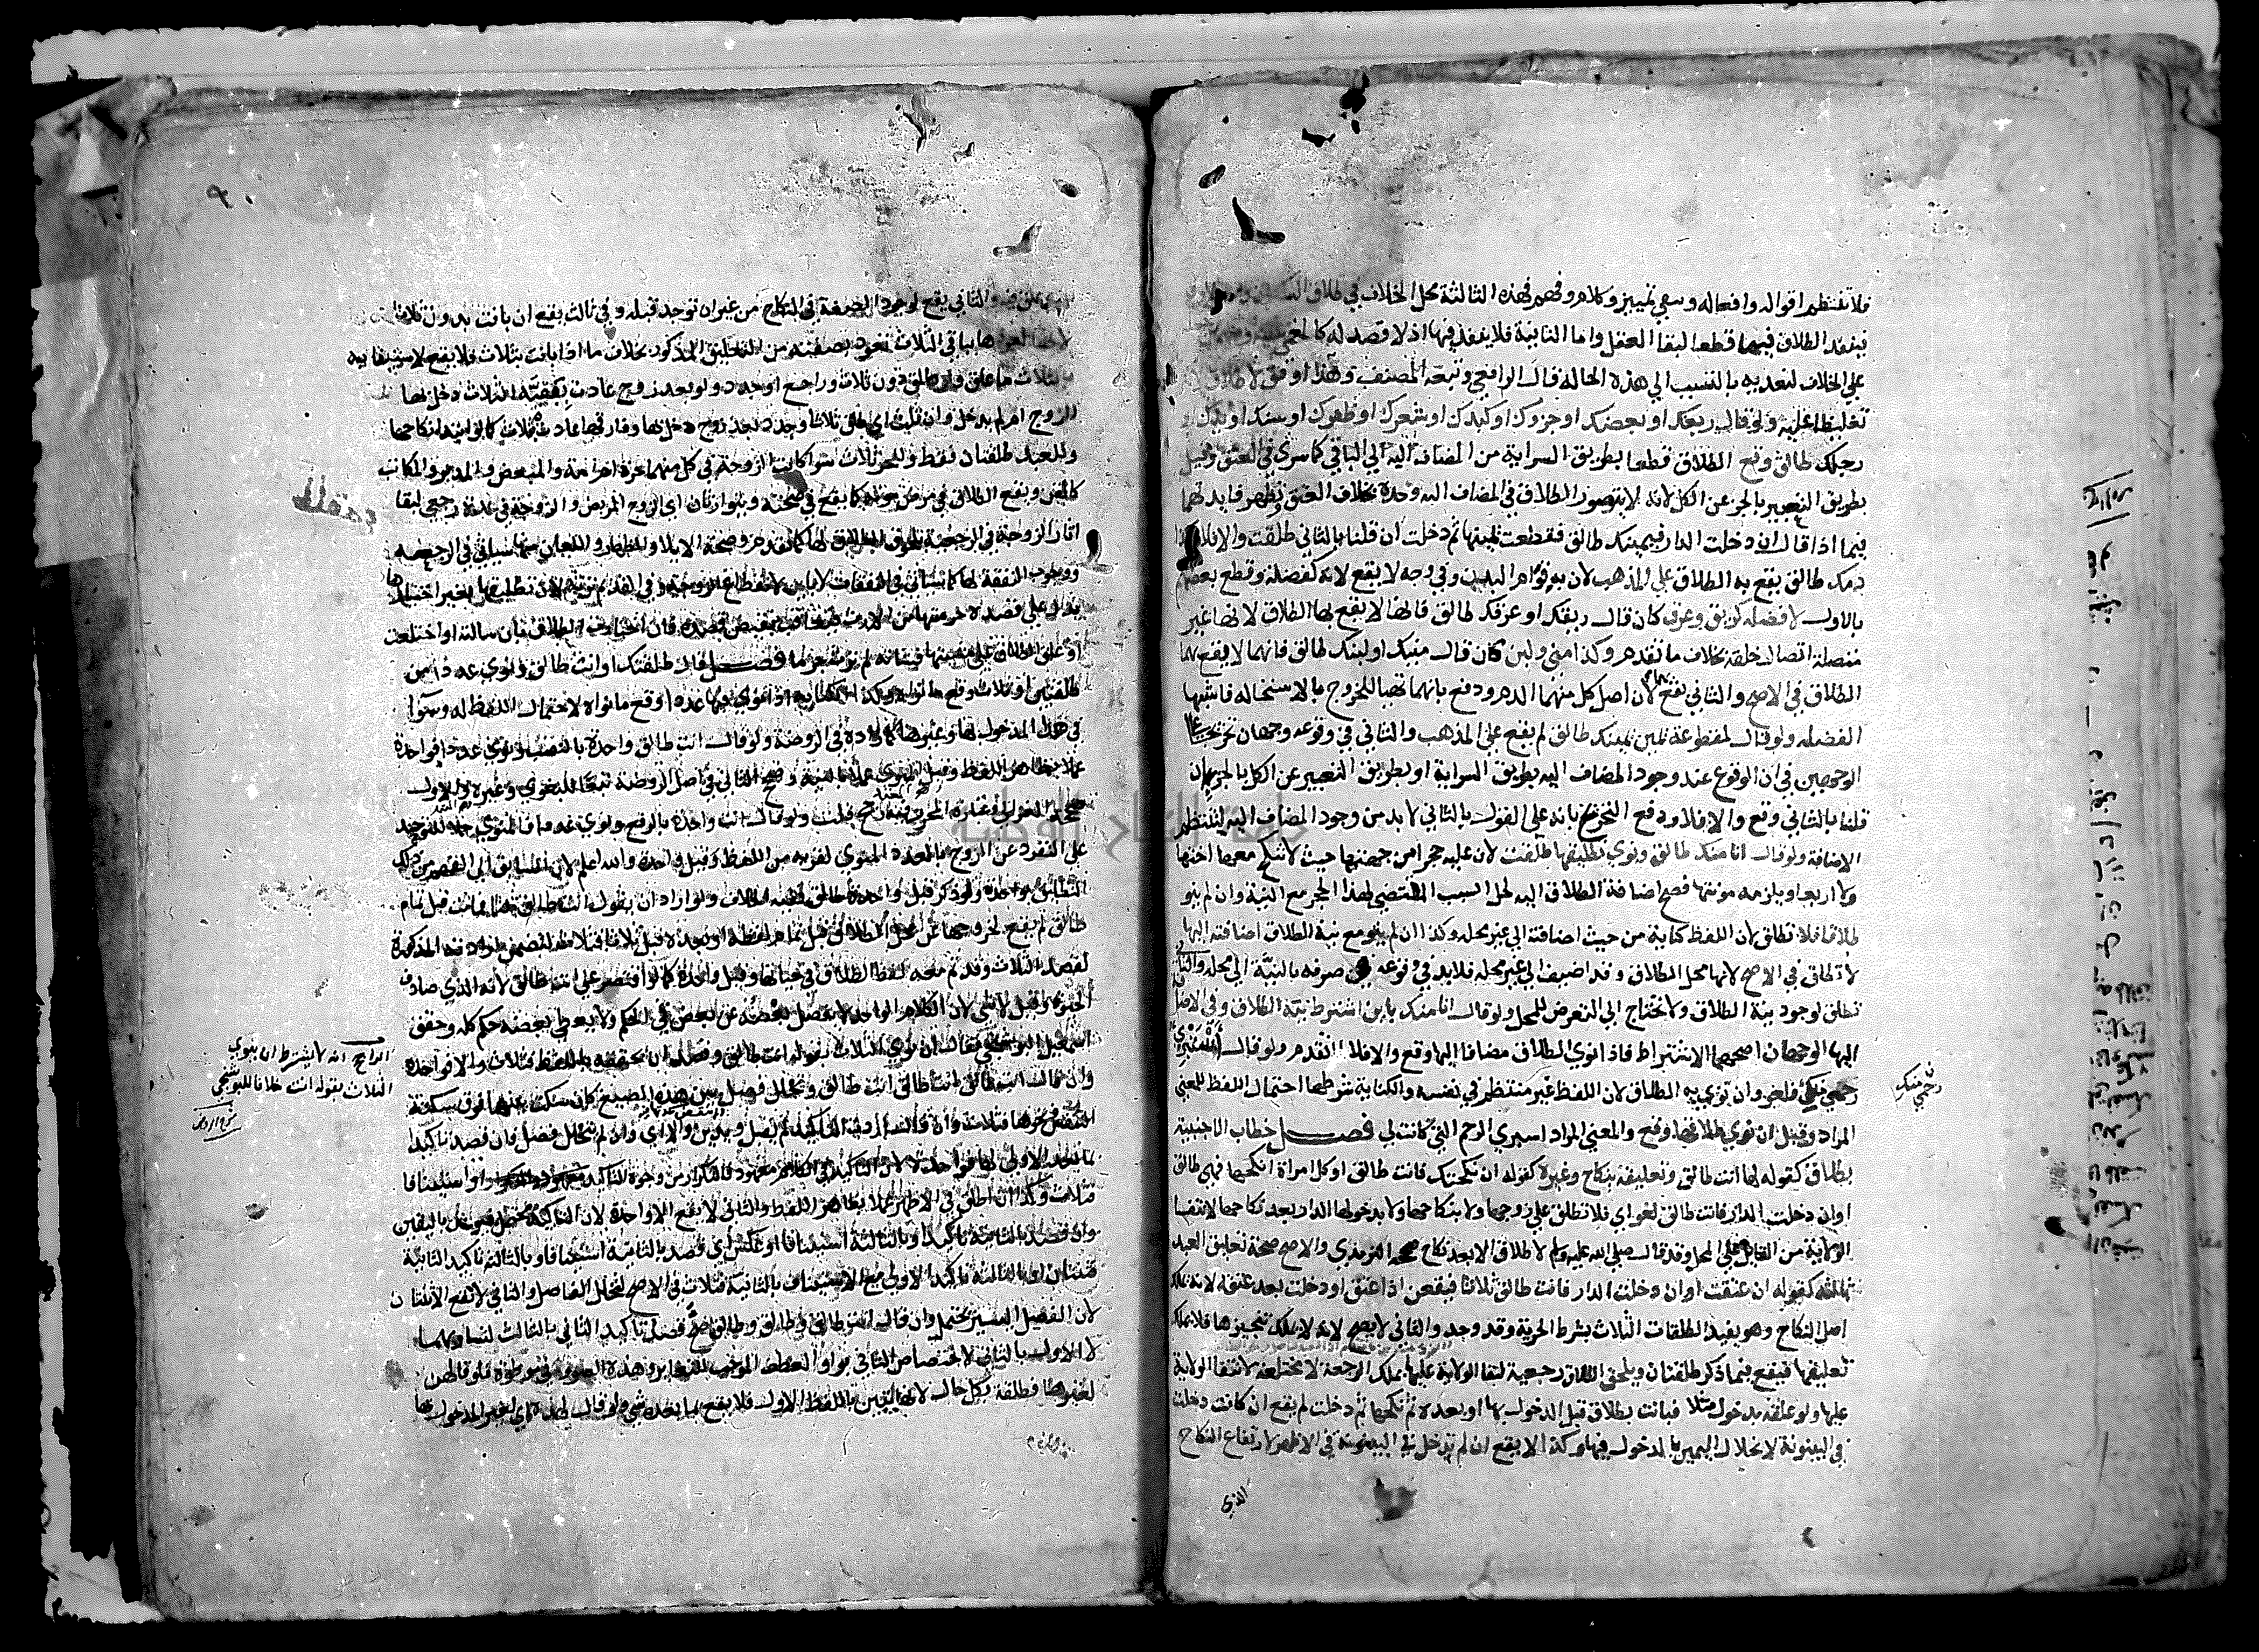 فلا تنتظم اقواله وافعاله ويبقى تمييز وكلام وفهم فهذه الثالثة محل الخلاف في طلاق السكران
ينفذ الطلاق فيها قطعا لبقا العقل واما الثانية فلا ينفذ فيها اذ لا قصد له كالمغمى عليه
على الخلاف لتعديه بالتسبب الى هذه الحالة قال الرافعي وتبعه المصنف وهذا اوفق لاطلاق
تغليظا عليه ولو قال ربعك او بعضك او جزوك او كبدك او شعرك او ظهرك او سنك او يدك او
رجلك طالق وقع الطلاق قطعا بطريق السراية من المضاف اليه الى الباقي كما سرى في العتق وقيل
بطريق التعبير بالجز عن الكل لانه لا يتصور الطلاق في المضاف اليه وحده بخلاف العتق وتظهر فايدتهما
فيما اذا قال ان دخلت الدار فيمينك طالق فقطعت يمينها ثم دخلت ان قلنا بالثاني طلقت والا فلا
دمك طالق يقع به الطلاق على المذهب لان به قوام البدن وفي وجه لا يقع لانه كفضلة وقطع بعضهم
بالاول لا فضلة كريق وعرق كان قال ريقك او عرقك طالق فانها لا يقع بها الطلاق لانها غير
متصلة اتصال خلقة بخلاف ما تقدم وكذا مني ولبن كان قال منيك او لبنك طالق فانهما لا يقع بهما
الطلاق في الاصح والثاني يقع لان اصل كل منهما الدم ودفع بانهما تهيا للخروج بالاستحالة فاشبها
الفضلة ولو قال لمقطوعة يمين يمينك طالق لم يقع على المذهب والثاني في وقوعه وجهان تخريجا على
الوجهين في ان الوقوع عند وجود المضاف اليه بطريق السراية او بطريق التعبير عن الكل بالجز ان
قلنا بالثاني وقع والا فلا ودفع التخريج بانه على القول بالثاني لا بد من وجود المضاف اليه لتنتظم
الاضافة ولو قال انا منك طالق ونوى تطليقها طلقت لان عليه حجرا من جهتها حيث لا ينكح معها اختها
ولا اربعا ويلزمه مونتها فصح اضافة الطلاق اليه لحل السبب المقتضي لهذا الحجر مع النية وان لم ينو
طلاقا فلا تطلق لان اللفظ كناية من حيث اضافته الى غير محله وكذا ان لم ينو مع نية الطلاق اضافته اليها
لا تطلق في الاصح لانها محل الطلاق وقد اضيف الى غير محله فلا بد في وقوعه من صرفه بالنية الى محله والثاني
تطلق لوجود نية الطلاق ولا حاجة الى التعرض للمحل ولو قال انا منك باين اشترط نية الطلاق وفي الاضافة
اليها الوجهان اصحهما الاشتراط فاذا نوى الطلاق مضافا اليها وقع والا فلا لما تقدم ولو قال استبري
رحمي منك فلغو وان نوى به الطلاق لان اللفظ غير منتظم في نفسه والكناية شرطها احتمال اللفظ للمعنى
المراد وقيل ان نوى طلاقها وقع والمعنى المراد استبري الرحم التي كانت لي فصل خطاب الاجنبية
بطلاق كقوله لها انت طالق وتعليقه بنكاح وغيره كقوله ان نكحتك فانت طالق او كل امراة انكحها فهي طالق
او ان دخلت الدار فانت طالق لغو اي فلا تطلق على زوجها ولا بنكاحها ولا بدخولها الدار بعد نكاحها لانتفا
الولاية من القايل على المحل وقد قال صلى الله عليه وسلم لا طلاق الا بعد نكاح صححه الترمذي والاصح صحة تعليق العبد
ثالثة كقوله ان عتقت او ان دخلت الدار فانت طالق ثلاثا فيقعن اذا عتق او دخلت بعد عتقه لانه يملك
اصل النكاح وهو يفيد الطلقات الثلاث بشرط الحرية وقد وجد والثاني لا يصح لانه لا يملك تنجيزها فلا يملك
تعليقها فيقع فيما ذكر طلقتان ويلحق الطلاق رجعية لبقا الولاية عليها بملك الرجعة لا مختلعة لانتفا الولاية
عليها ولو علقه بدخول مثلا فبانت بطلاق قبل الدخول بها او بعده ثم نكحها ثم دخلت لم يقع ان كانت دخلت
في البينونة لانحلال اليمين بالدخول فيها وكذا لا يقع ان لم تدخل في البينونة في الاظهر لارتفاع النكاح
الذي
رحمي منك
٩٠
والثاني يقع لوجود الصفة في النكاح من غير ان توجد قبله وفي ثالث يقع ان بانت بدون ثلاث
بباقي الثلاث تعود بصفته من التعليق المذكور بخلاف ما اذا بانت بثلاث فلا يقع لاستيفائه
الثلاث ما علق ولو طلق دون ثلاث وراجع او جدد ولو بعد زوج عادت ببقية الثلاث دخل بها
الزوج ام لم يدخل وان ثلث اي طلق ثلاثا وجدد بعد زوج دخل بها وفارقها عادت بثلاث كما لو ابتدا نكاحها
وللعبد طلقتان فقط وللحر ثلاث سوا كانت الزوجة في كل منهما حرة ام امة والمبعض والمدبر والمكاتب
كالقن ويقع الطلاق في مرض موته كما يقع في صحته ويتوارثان اي الزوج المريض والزوجة في عدة رجعي لبقا
اثار الزوجية في الرجعية بلحوق الطلاق لها كما تقدم وصحة الايلا والظهار واللعان منها كما سياتي في الرجعة
ووجوب النفقة لها كما سياتي في النفقات لا باين لانقطاع الزوجية وفي القديم ترثه لان تطليقها بغير اختيارها
يدل على قصده حرمانها من الارث فيعاقب بنقيض قصده فان اختارت الطلاق بان سالته او اختلعت
او علق الطلاق على مشيتها فشات لم ترث جزما فصل قال طلقتك او انت طالق ونوى عددا من
طلقتين او ثلاث وقع ما نواه وكذا الكناية اذا نوى فيها عددا وقع ما نواه لاحتمال اللفظ له وسوا
في هذا المدخول بها وغيرها كما زاده في الروضة ولو قال انت طالق واحدة بالنصب ونوى عددا فواحدة
عملا بظاهر اللفظ وقيل المنوي عملا بالنية وصحح الثاني في اصل الروضة تبعا للبغوي وغيره والاول
صححه الغزالي قلت ولو قال انت واحدة بالرفع ونوى عددا فالمنوي حملا للتوحيد
على التفرد عن الزوج بالعدد المنوي لقربه من اللفظ وقيل واحدة والله اعلم لان السابق الى الفهم من ذلك
التطليق بواحدة ولو اراد ان يقول انت طالق ثلاثا فماتت قبل تمام
طالق لم يقع لخروجها عن محل الطلاق قبل تمام لفظه او بعده قبل ثلاثا فثلاث لتضمن ارادته المذكورة
لقصد الثلاث وقد تم معه لفظ الطلاق في حياتها وقيل واحدة كما لو اقتصر على انت طالق لانه الذي صادف
الحيوة وقيل لا شي لان الكلام الواحد لا يفصل بعضه عن بعض في الحكم ولا يعطى بعضه حكم كله وحقق
اسمعيل البوشنجي فقال ان نوى الثلاث بقوله انت طالق وقصد ان يحققه باللفظ فثلاث والا فواحدة
وان قال انت طالق انت طالق انت طالق وتخلل فصل بين هذه الصيغ كان سكت بينها فوق سكتة
التنفس ونحوها فثلاث وان قال اردت التاكيد لم يقبل ويدين والا اي وان لم يتخلل فصل فان قصد تاكيدا
لما بعد الاولى بها فواحدة لان التاكيد في الكلام معهود والتكرار من وجوه التاكيد او استينافا
فثلاث وكذا ان اطلق في الاظهر عملا بظاهر اللفظ والثاني لا يقع الا واحدة لان التاكيد محتمل فيوخذ باليقين
وان قصد بالثانية تاكيدا وبالثالثة استينافا او عكس اي قصد بالثانية استينافا وبالثالثة تاكيد الثانية
فثنتان او بالثالثة تاكيد الاولى مع الاستيناف بالثانية فثلاث في الاصح لتخلل الفاصل والثاني لا تقع الا ثنتان
لان الفصل اليسير محتمل وان قال انت طالق وطالق وطالق صح قصد تاكيد الثاني بالثالث لتساويهما
لا الاول بالثاني لاختصاص الثاني بواو العطف الموجب للتغاير وهذه الصور في موطوة فلو قالهن
لغيرها فطلقة بكل حال لانها تبين باللفظ الاول فلا يقع بما بعده شي ولو قال لهذه اي لغير المدخول بها
الراجح انه لا يشترط ان ينوي
الثلاث بقوله انت خلافا للبوشنجي